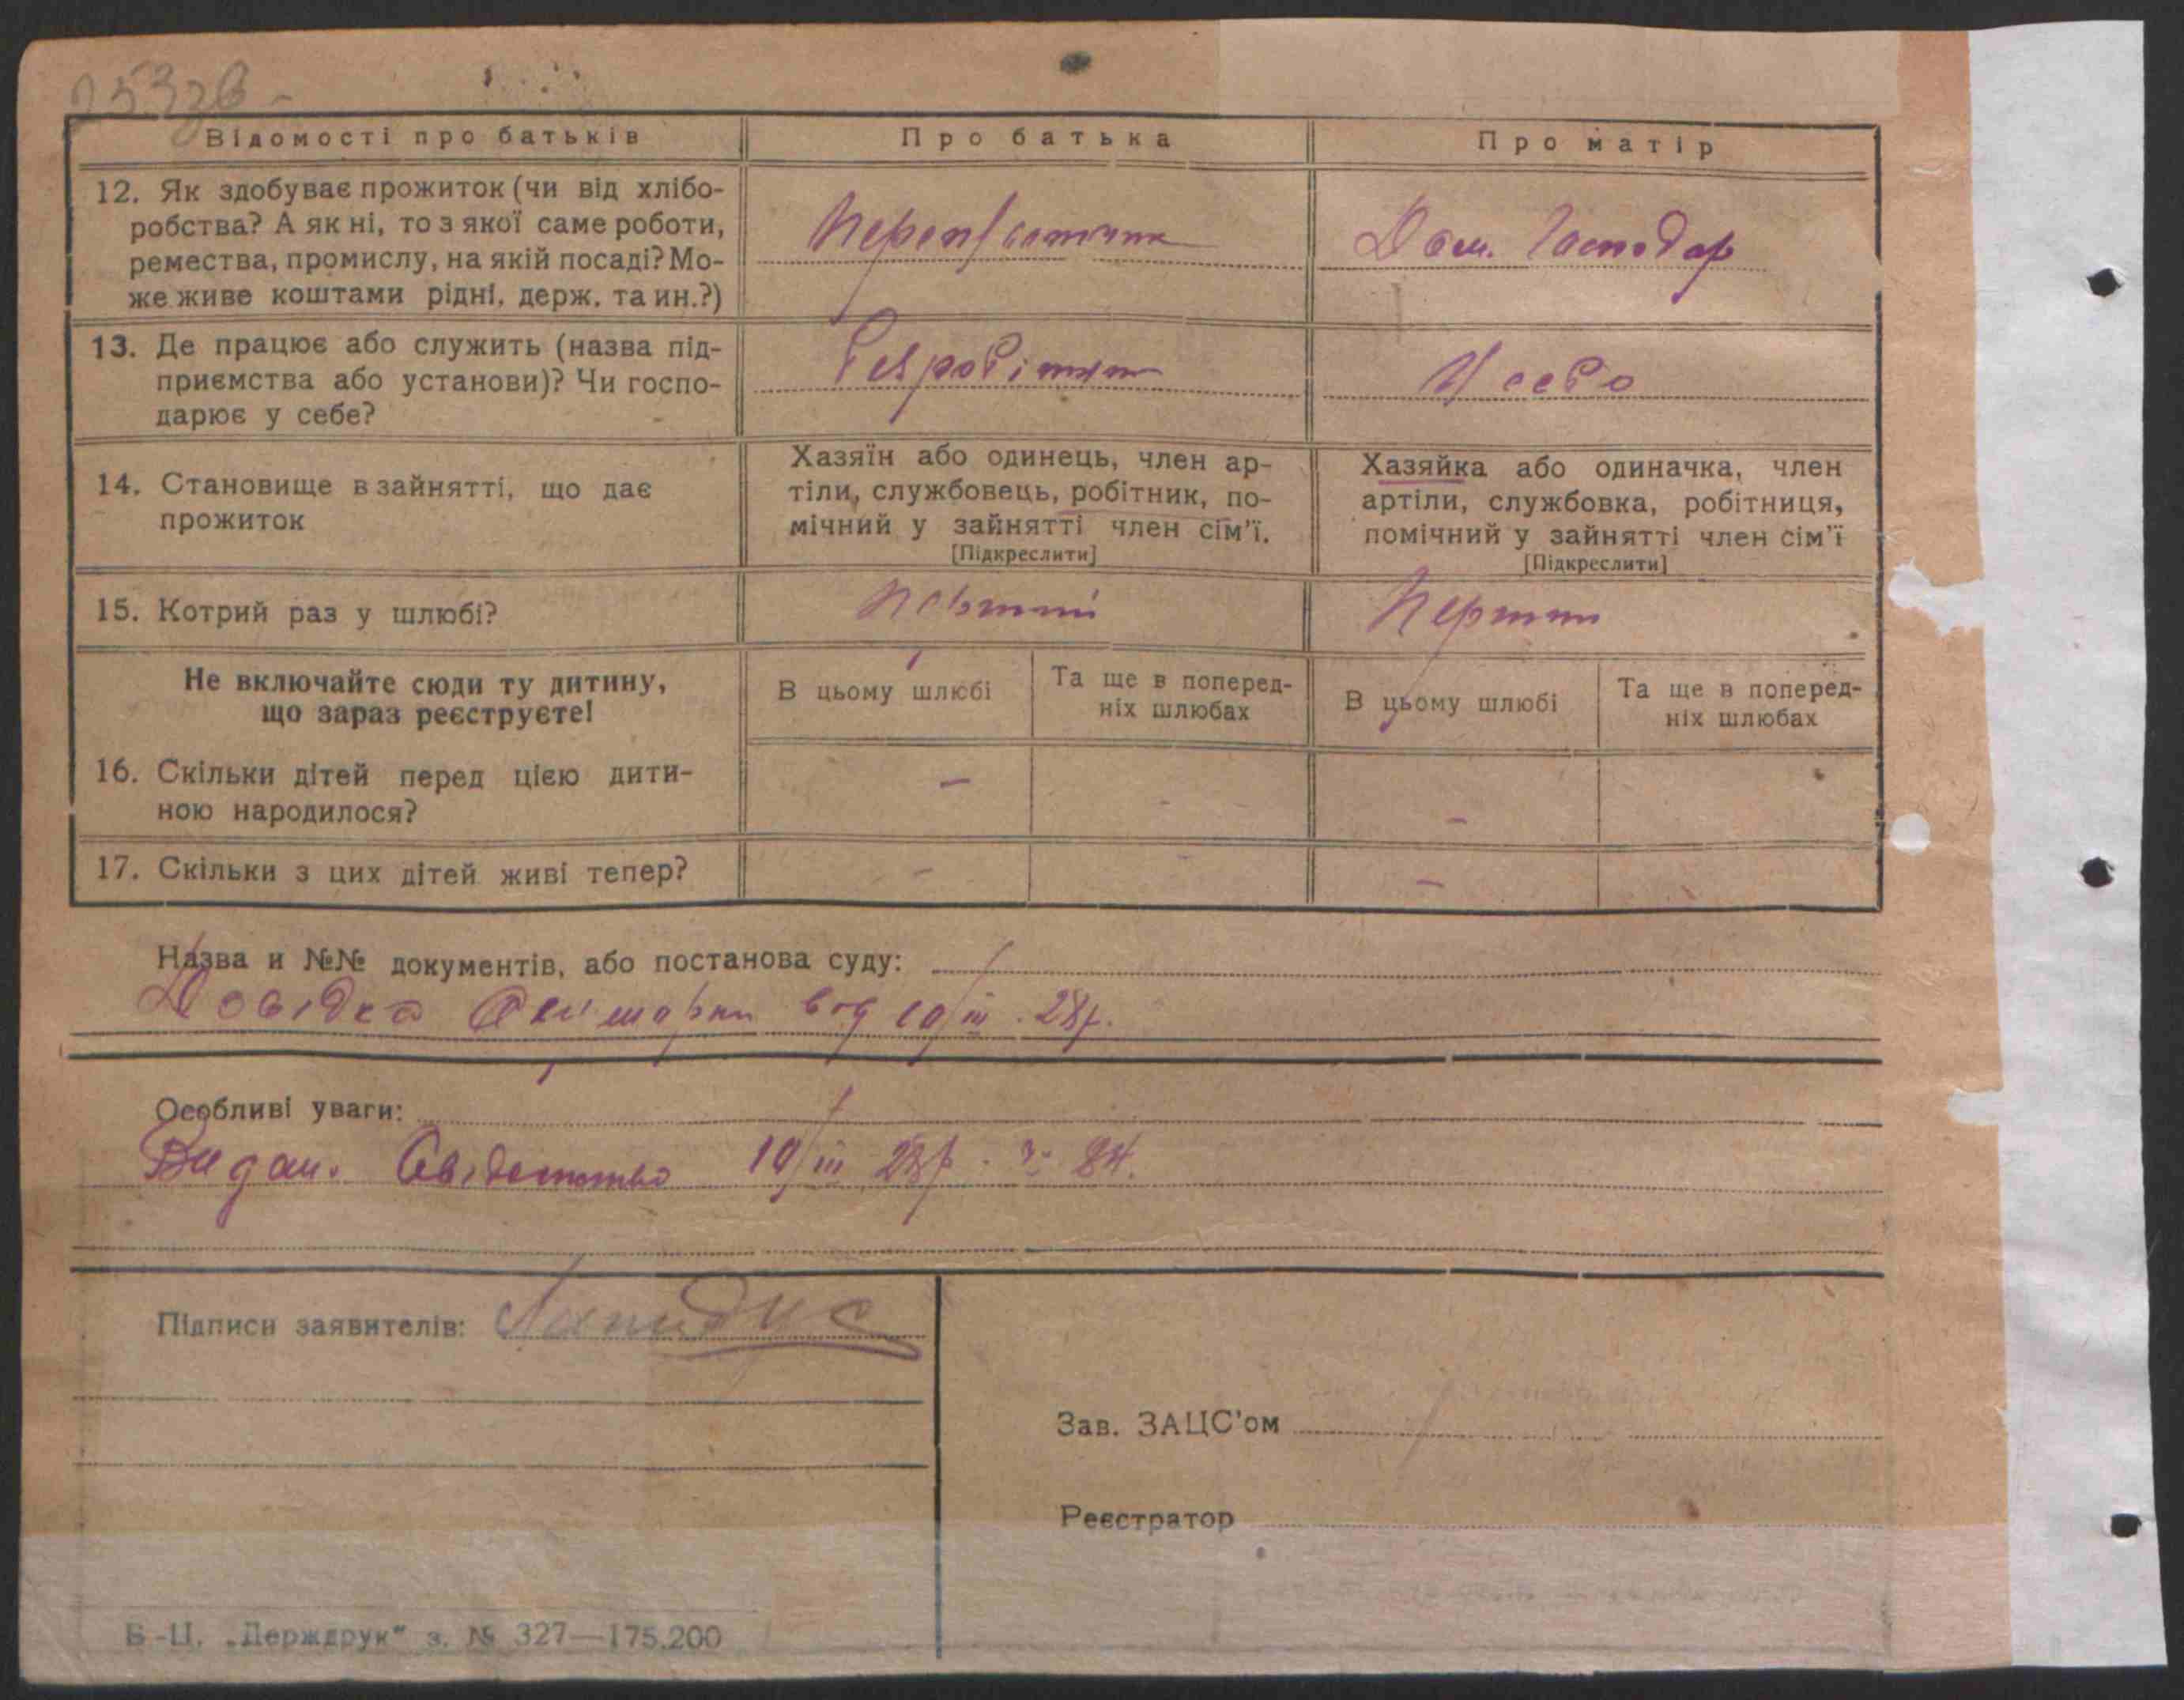 Відомості про батьків
Про батька
Про матір
12. Як здобуває прожиток (чи від хлібо-
робства? А як ні, то з якої саме роботи,
ремества, промислу, на якій посаді? Мо-
же живе коштами рідні, держ. та ин.?)
Дом. Господар
13. Де працює або служить (назва під-
приємства або установи)? Чи госпо-
дарює у себе?
Безробітний
У себе
14. Становище в зайнятті, що дає
прожиток
Хазяїн або одинець, член ар-
тіли, службовець, робітник, по-
мічний у зайнятті член сім'ї.
[Підкреслити]
Хазяйка або одиначка, член
артіли, службовка, робітниця,
помічний у зайнятті член сім'ї
[Підкреслити]
15. Котрий раз у шлюбі?
Перший
Перший
Не включайте сюди ту дитину,
що зараз реєструєте!
В цьому шлюбі
Та ще в поперед-
ніх шлюбах
В цьому шлюбі
Та ще в поперед-
ніх шлюбах
16. Скільки дітей перед цією дити-
ною народилося?
-
-
17. Скільки з цих дітей живі тепер?
-
-
Назва и №№ документів, або постанова суду:
Довідка від 19/III 28р.
Особливі уваги:
Видан. Свідотство 19/III 28р. ч. 84.
Підписи заявителів:
Зав. ЗАЦС'ом
Реєстратор
Б-Ц. „Держдрук" з. № 327—175.200